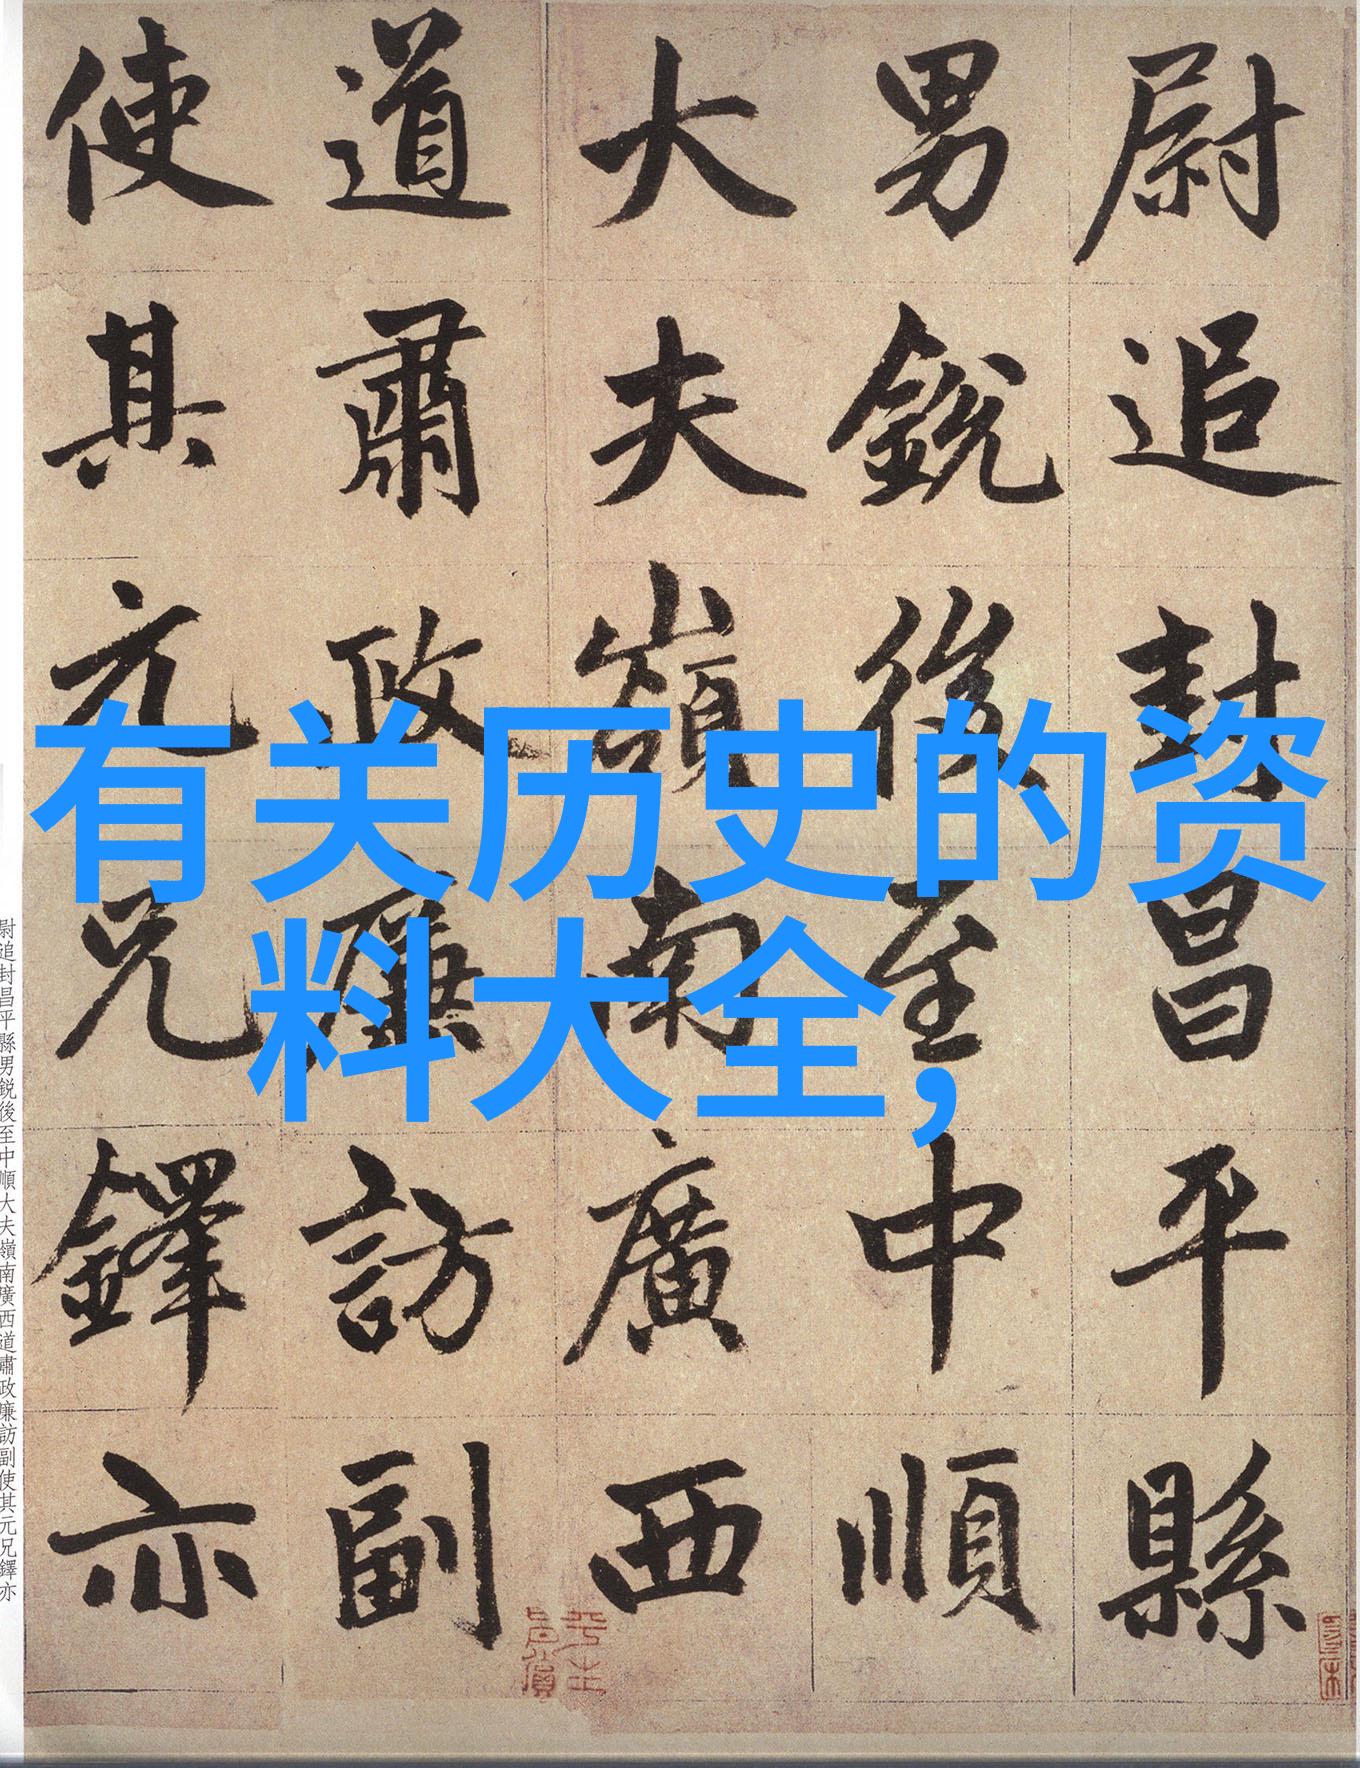 尉追封昌平縣
男銳後至中順
大夫嶺南廣西
道肅政廉訪副
使其元兄鐸亦
有关历史的资
料大全,
尉追封昌平縣男銳後至中順大夫嶺南廣西道肅政廉訪副使其元兄鐸亦